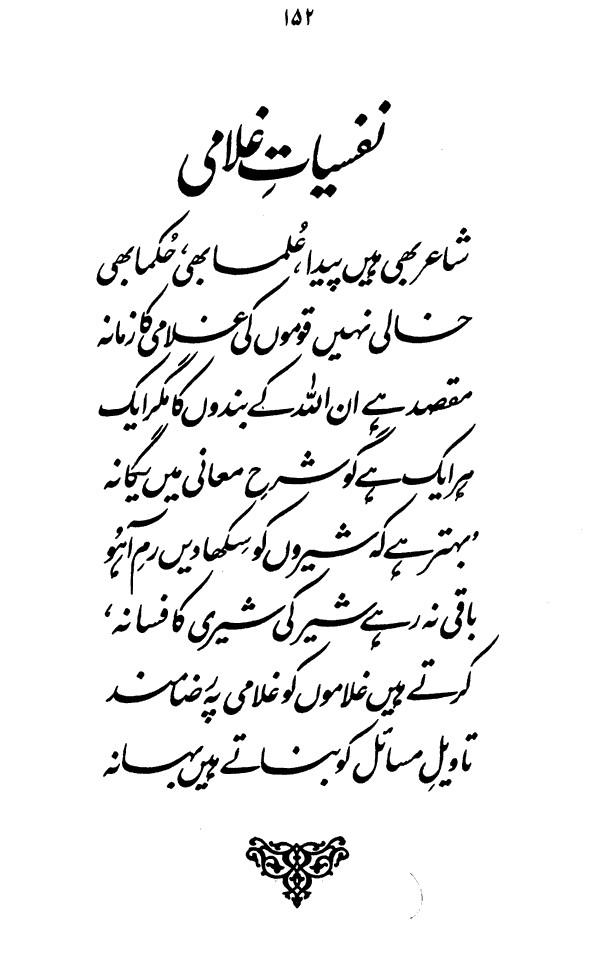 ۱۵۲
نفسیاتِ غلامی
شاعر بھی ہیں پیدا، عُلما بھی، حُکما بھی
خالی نہیں قوموں کی غلامی کا زمانہ
مقصد ہے ان اللہ کے بندوں کا مگر ایک
ہر ایک ہے گو شرحِ معانی میں یگانہ
'بہتر ہے کہ شیروں کو سِکھا دیں رمِ آہُو
باقی نہ رہے شیر کی شیری کا فسانہ'
کرتے ہیں غلاموں کو غلامی پہ رضامند
تاویلِ مسائل کو بناتے ہیں بہانہ